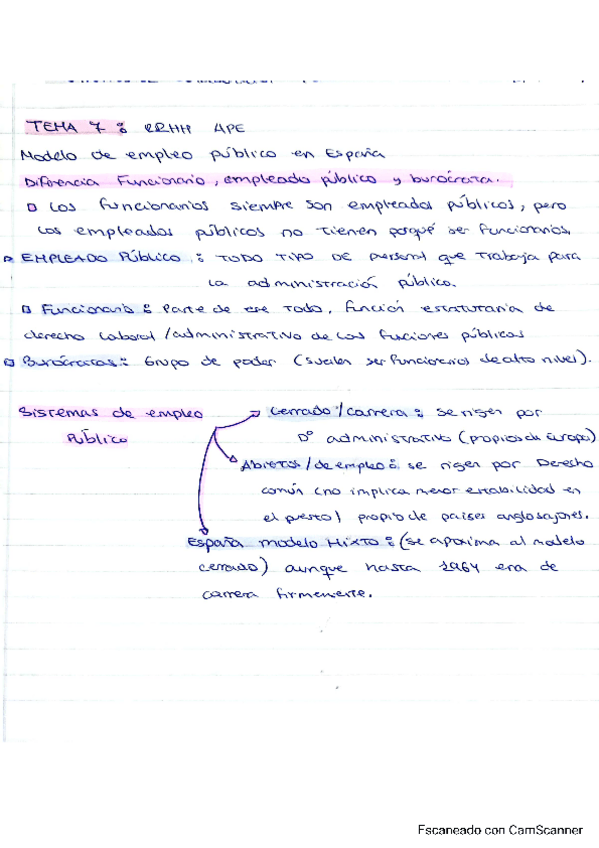 TEMA 7: RRHH APE
Modelo de empleo público en España
Diferencia Funcionario, empleado público y burócrata.
Los funcionarios siempre son empleados públicos, pero
los empleados públicos no tienen porqué ser funcionarios.
EMPLEADO Público: TODO TIPO DE personal que trabaja para
la administración público.
Funcionario: Parte de ese Todo, función estatutaria de
derecho laboral/administrativo de las funciones públicos
Burócratas: Grupo de poder (suelen ser funcionarios de alto nivel).
Sistemas de empleo Público
Cerrado/carrera: se rigen por
Dº administrativo (propios de Europa)
Abiertos/de empleo: se rigen por Derecho
común (no implica menor estabilidad en
el puesto) propio de países anglosajones.
España modelo Mixto: (se aproxima al modelo
cerrado) aunque hasta 1964 era de
carrera firmemente.
Escaneado con CamScanner